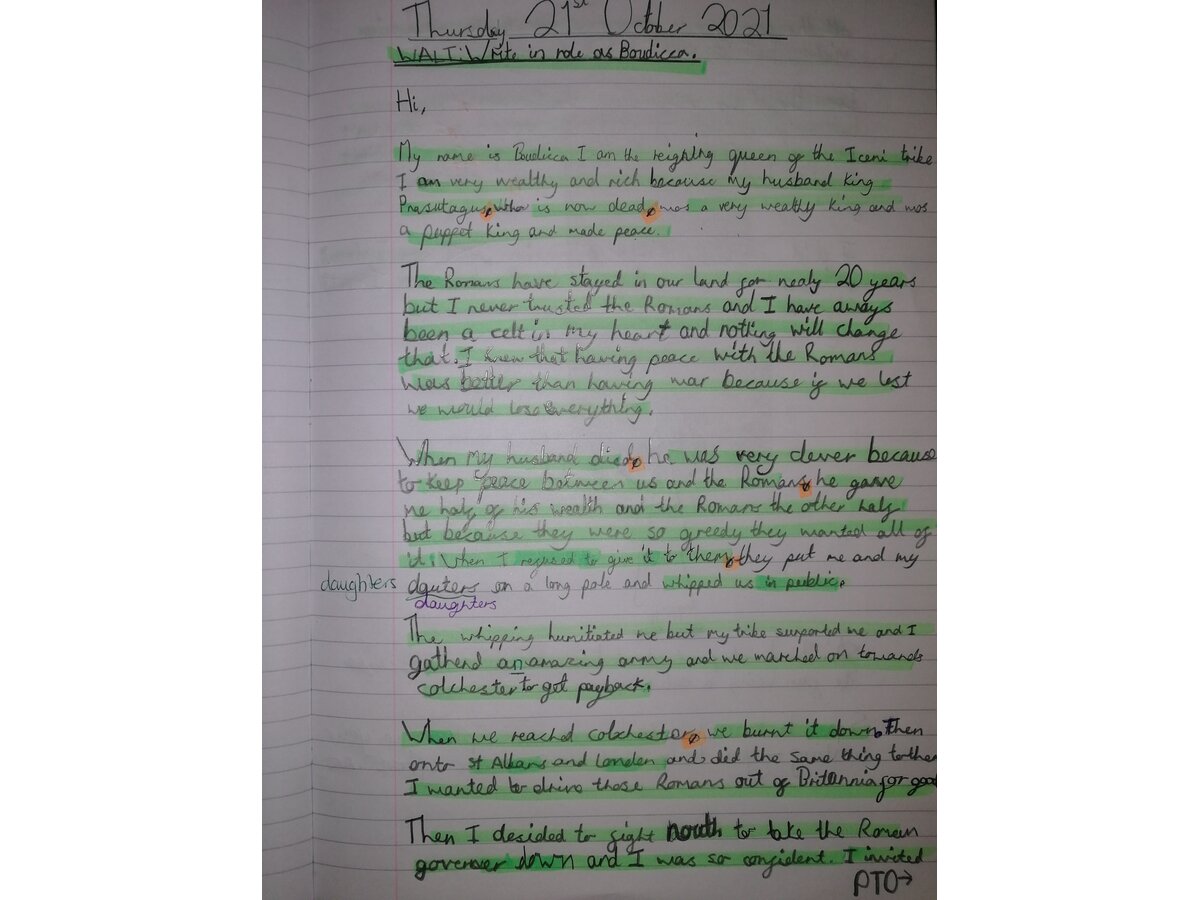 Thursday 21st October 2021
WALT: Write in role as Boudicca.
Hi,
My name is Boudicca I am the reighing queen of the Iceni tribe
I am very wealthy and rich because my husband King
Prasutagus, who is now dead, was a very wealthy King and was
a puppet King and made peace.
The Romans have stayed in our land for nealy 20 years
but I never trusted the Romans and I have aways
been a celt in my heart and nothing will change
that. I knew that having peace with the Romans
was better than having war because if we lost
we would lose everything.
When my husband died, he was very clever because
to keep peace between us and the Romans, he gave
me half of his wealth and the Romans the other half
but because they were so greedy they wanted all of
it. When I refused to give it to them, they put me and my
daughters dguters on a long pole and whipped us in public.
daughters
The whipping humitiated me but my tribe supported me and I
gatherd an amazing army and we marched on towards
colchester to get payback.
When we reached colchester, we burnt it down. Then
onto st Albans and London and did the same thing to them
I wanted to drive those Romans out of Britannia for good
Then I decided to fight north to take the Roman
governer down and I was so confident. I invited
PTO→